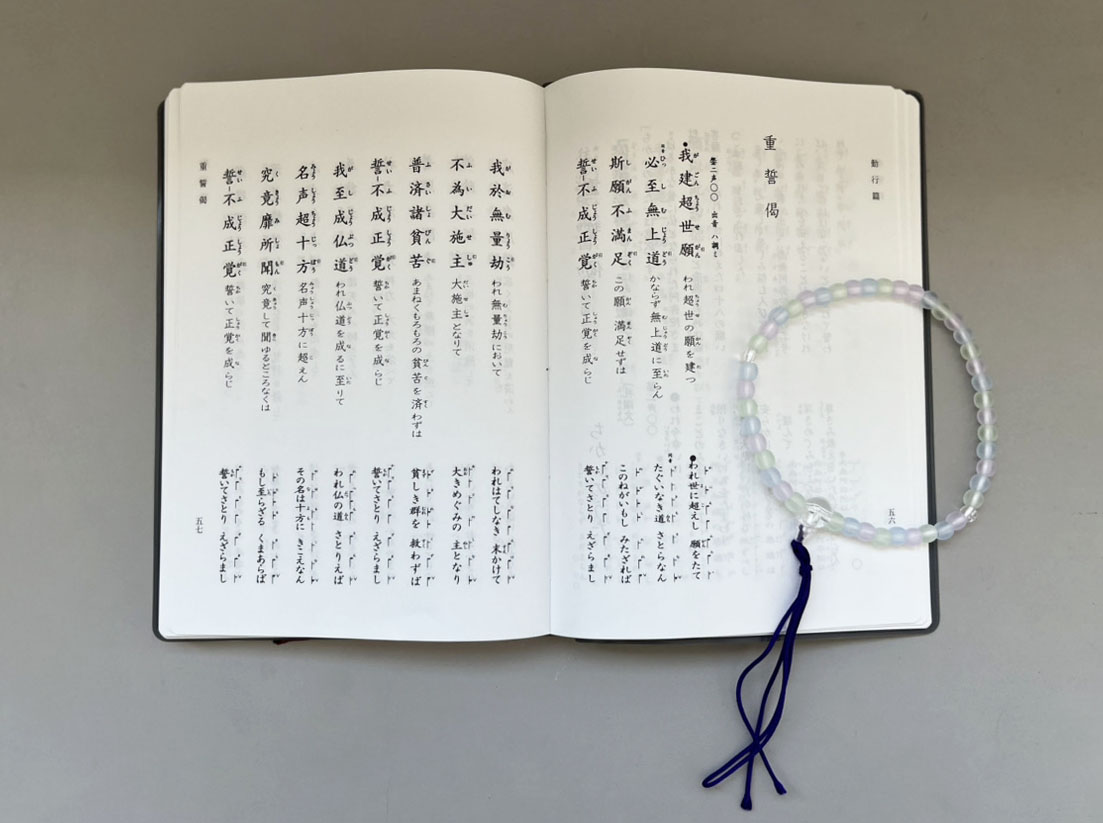 勤行篇
重誓偈
磬二声〇〇 出音 ハ調ミ
●我建超世願 われ超世の願を建つ ●われ世に超えし 願をたて
必至無上道 かならず無上道に至らん たぐいなき道 さとらなん
斯願不満足 この願 満足せずは このねがいもし みたざれば
誓不成正覚 誓いて正覚を成らじ 誓いてさとり えざらまし
五六
我於無量劫 われ無量劫において われはてしなき 末かけて
不為大施主 大施主となりて 大きめぐみの 主となり
普済諸貧苦 あまねくもろもろの貧苦を済わずは 貧しき群を 救わずば
誓不成正覚 誓いて正覚を成らじ 誓いてさとり えざらまし
我至成仏道 われ仏道を成るに至りて われ仏の道 さとりえば
名声超十方 名声十方に超えん その名は十方に きこえなん
究竟靡所聞 究竟して聞ゆるところなくは もし至らざる くまあらば
誓不成正覚 誓いて正覚を成らじ 誓いてさとり えざらまし
重誓偈
五七